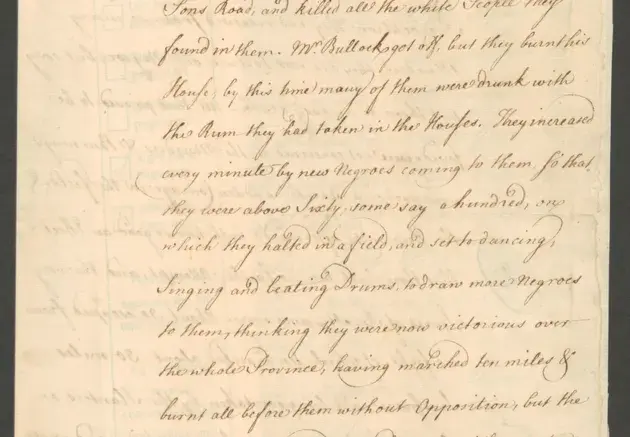 Pons Road, and killed all the white People they
found in them. Mr. Bullock got off, but they burnt his
House, by this time many of them were drunk with
the Rum they had taken in the Houses. They increased
every minute by new Negroes coming to them, so that
they were above Sixty, some say a hundred, on
which they halted in a field, and set to dancing,
Singing and beating Drums, to draw more Negroes
to them, thinking they were now victorious over
the whole Province, having marched ten miles &
burnt all before them without Opposition, but the